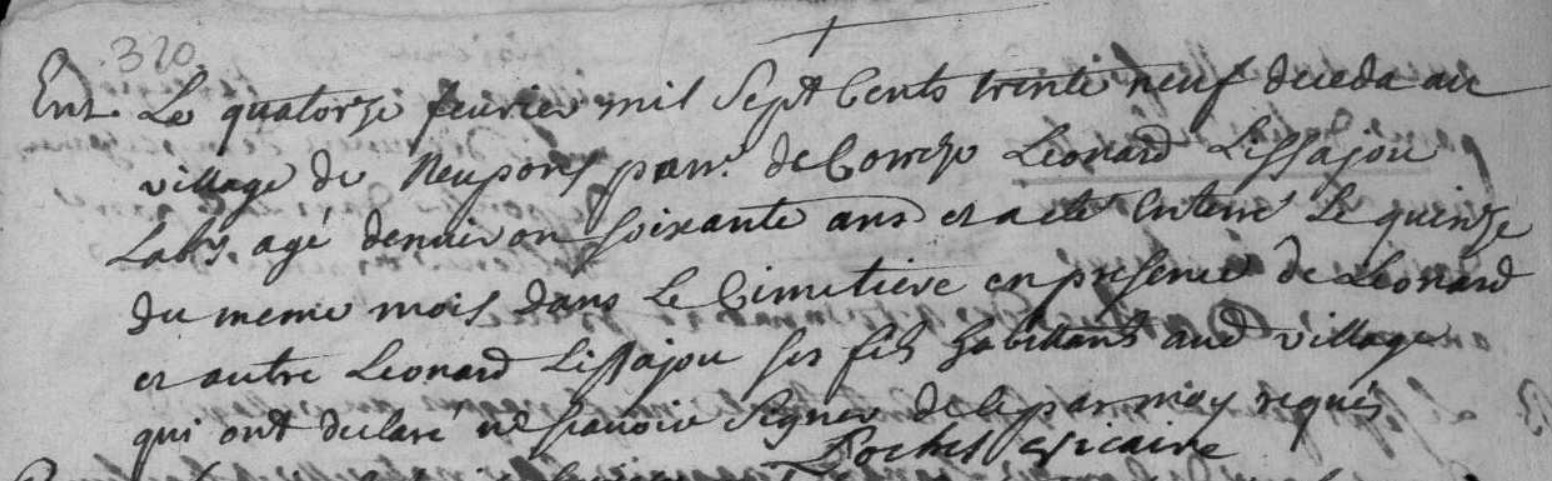 320
Ent. Le quatorze feurier mil Sept Cents trente neuf deceda au
village de Neupons parr. de Correze Leonard Lissajou
Labr. agé denuiron soixante ans et a eté enterré Le quinze
du meme mois dans Le Cimetiere en presence de Leonard
et autre Leonard Lissajou ses fils habittants aud village
qui ont declaré ne scauoir Signer de ce par moy requis
vicaire